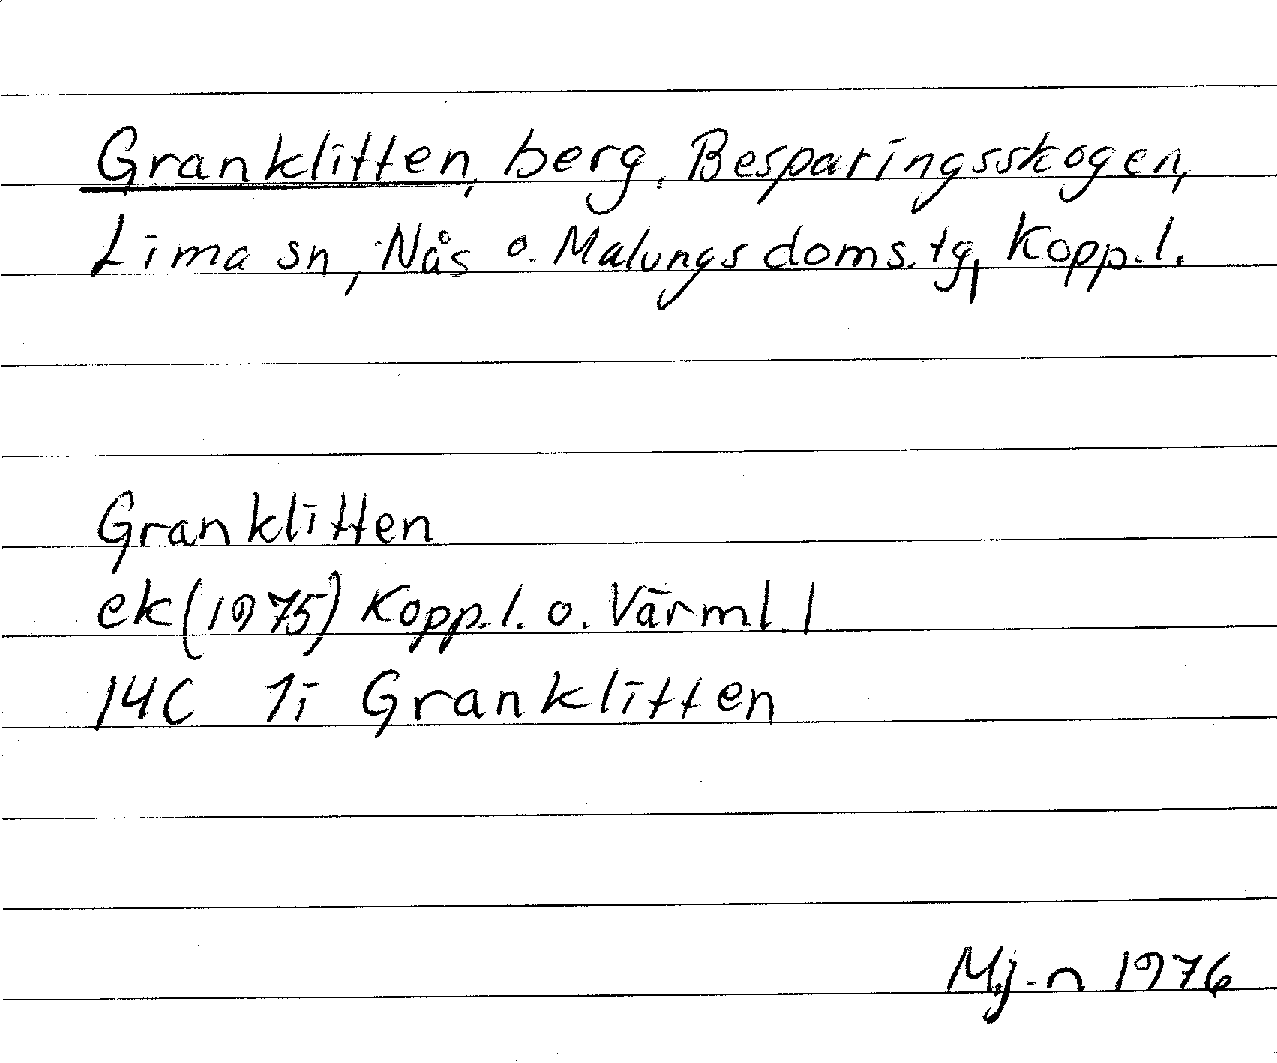 Granklitten, berg, Besparingsskogen,
Lima sn, Nås o. Malungs doms. tg, Kopp. l.
Granklitten
ek (1975) Kopp. l. o. Värml. l
14C 1i Granklitten
Mj-n 1976